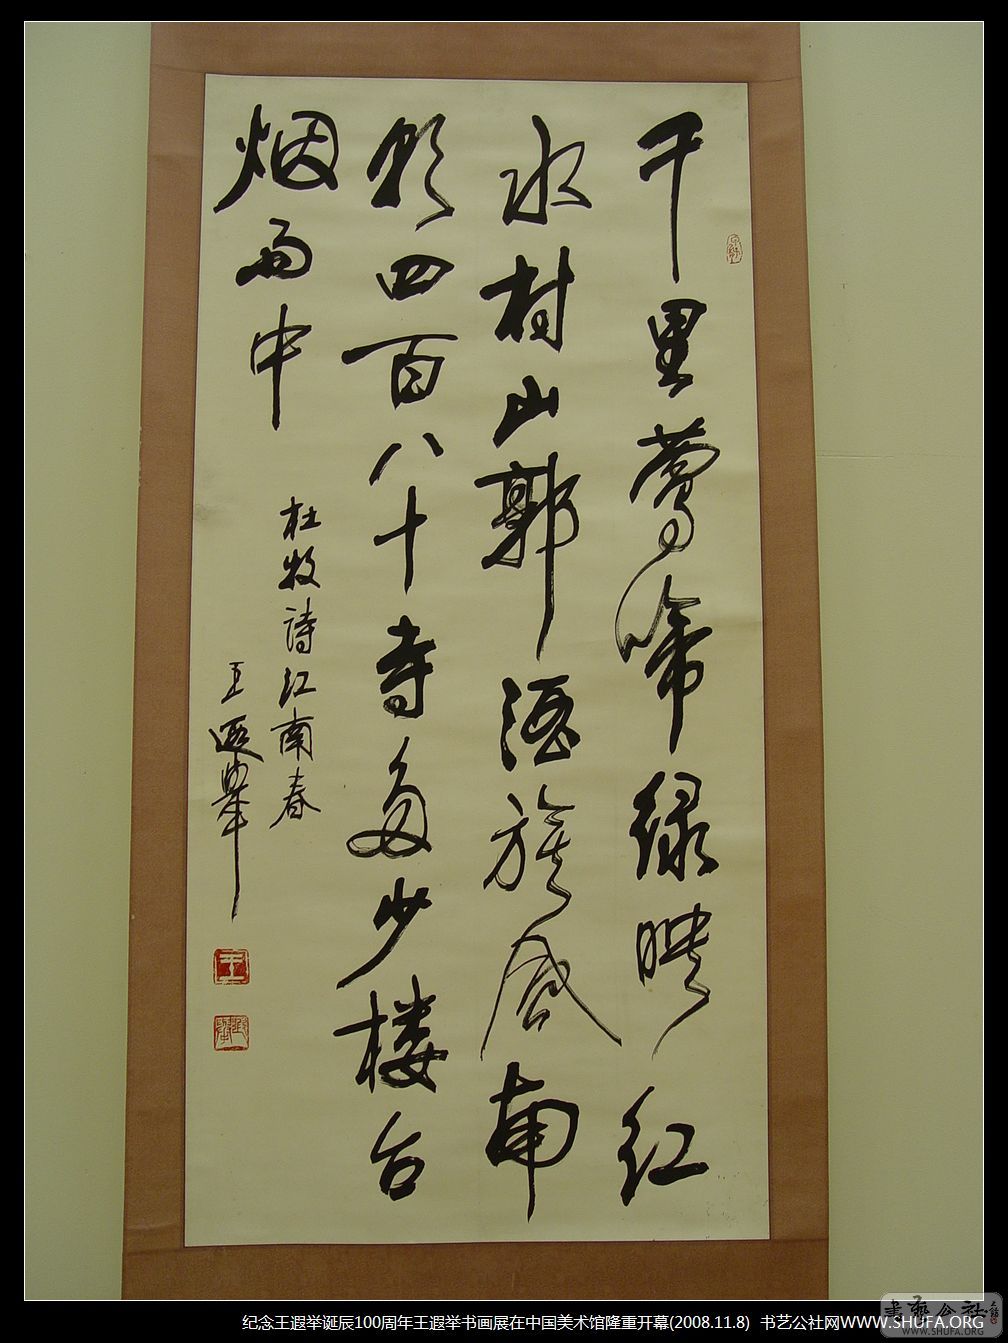 千里莺啼绿映红
水村山郭酒旗风南
朝四百八十寺多少楼台
烟雨中
杜牧詩江南春
王遐舉
王
纪念王遐举诞辰100周年王遐举书画展在中国美术馆隆重开幕(2008.11.8) 书艺公社网WWW.SHUFA.ORG
書藝公社
www.SHUFA.ORG